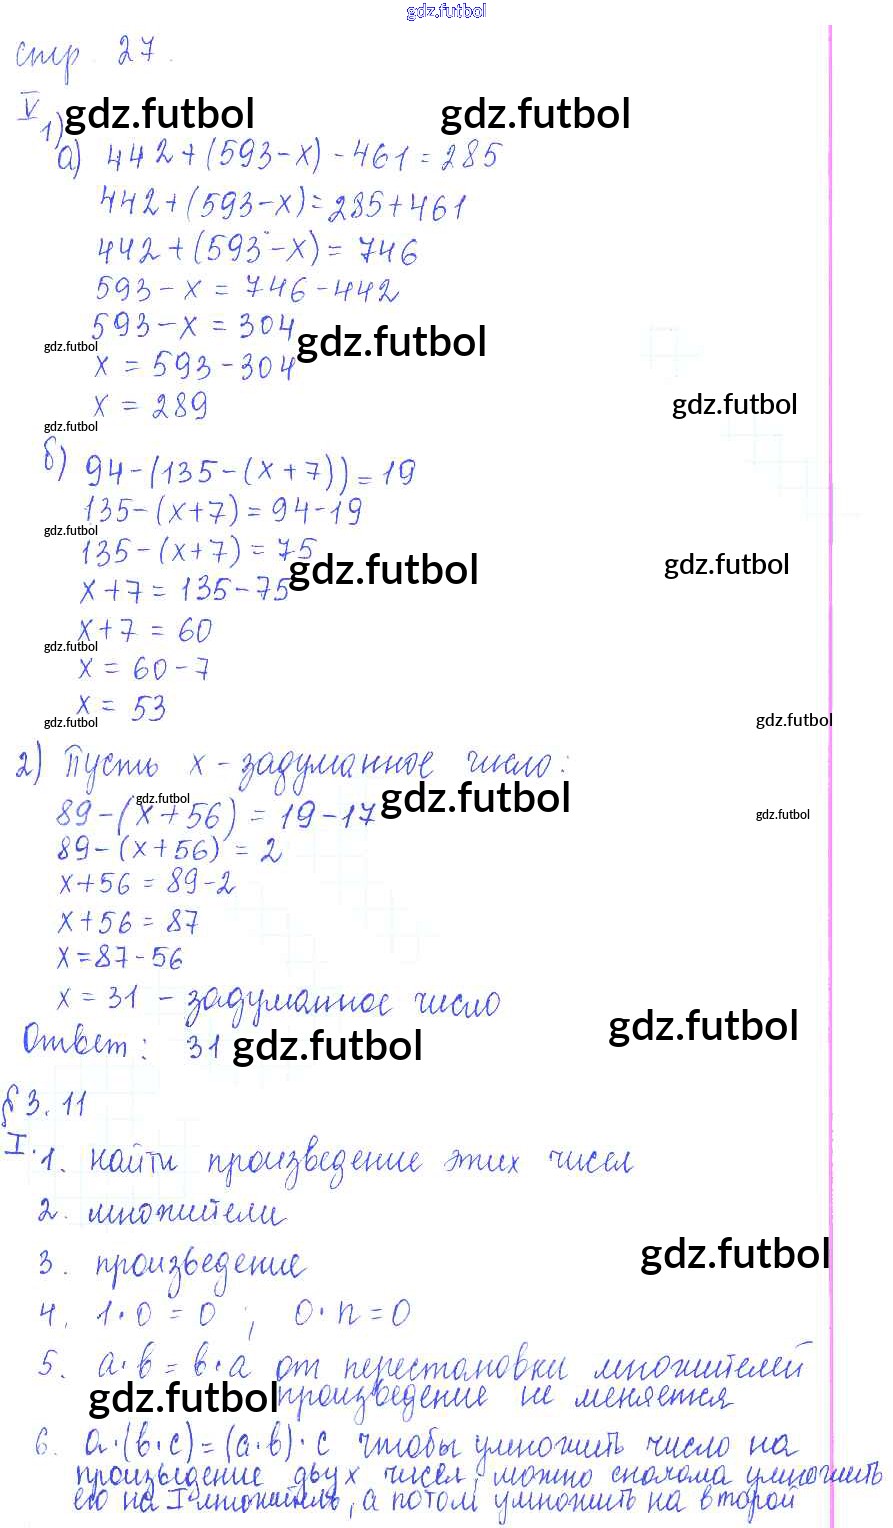 gdz.futbol
стр. 27.
V gdz.futbol gdz.futbol
1)
а) 442+(593-x)-461=285
442+(593-x)=285+461
442+(593-x)=746
593-x=746-442
593-x=304
gdz.futbol gdz.futbol
x=593-304
x=289
gdz.futbol
gdz.futbol
б) 94-(135-(x+7))=19
135-(x+7)=94-19
gdz.futbol
135-(x+7)=75
gdz.futbol gdz.futbol
x+7=135-75
x+7=60
gdz.futbol
x=60-7
x=53
gdz.futbol gdz.futbol
2) Пусть x - задуманное число:
gdz.futbol gdz.futbol
89-(x+56)=19-17
gdz.futbol
89-(x+56)=2
x+56=89-2
x+56=87
x=87-56
x=31 - задуманное число
gdz.futbol
Ответ: 31 gdz.futbol
§ 3.11
I. 1. найти произведение этих чисел
2. множители
3. произведение
gdz.futbol
4. 1·0=0; 0·n=0
5. a·b=b·a от перестановки множителей
gdz.futbol произведение не меняется
6. a·(b·c)=(a·b)·c чтобы умножить число на
произведение двух чисел, можно сначала умножить
его на I множитель, а потом умножить на второй